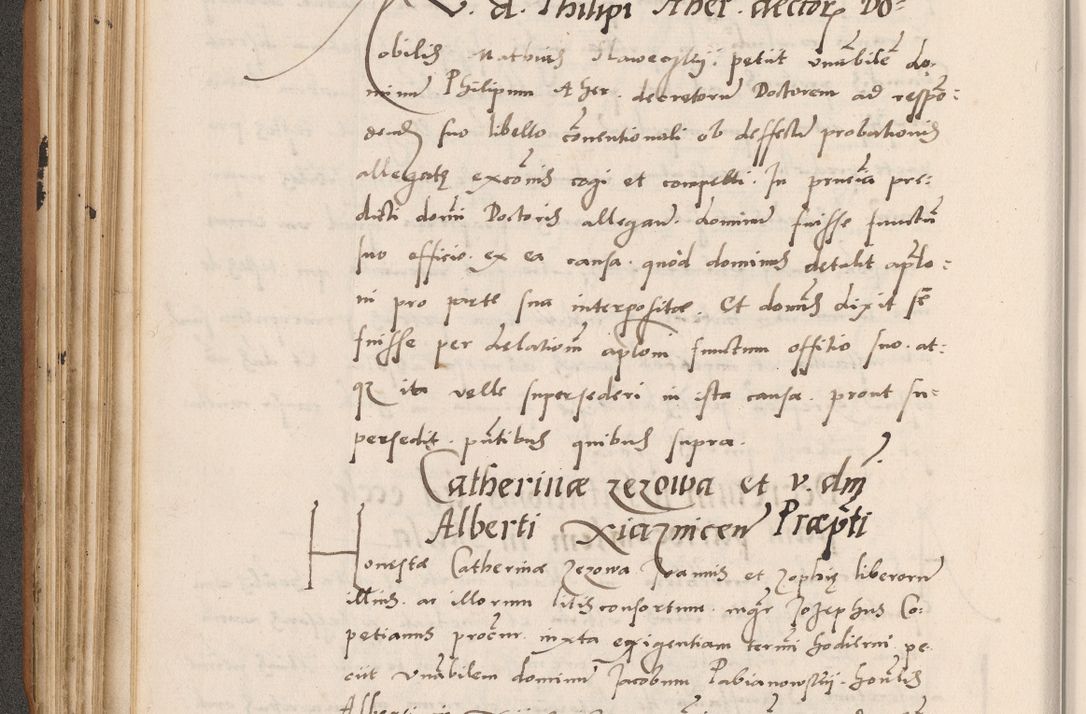 V. d. Philipi Ather. decretorū Do=
obilis Mathias Slaweczkij. petiit vnābilē do-
minum Philipum Ather. decretorū Doctorem ad respō=
dendū suo libello cōventionali ob deffectū probationis
allegatę excōnis cogi et compelli. In prnēia pre=
dicti domī Doctoris allegavē. dominū fuisse functū
suo officio. ex ea causa. quòd dominus detulit aplō=
ni pro parte sua interpositæ. Et domūs dixit sē
fuisse per delationē aplōni functum offitio suo. at=
que ita velle supersederi in ista causa. prout su=
persedit. pñtibus quibus supra.
Catherinæ zezowa et v. dm̄
Alberti Xiaznicen̄ Præpti
Honestæ Catherinæ Zezowa Joannis et Zophię liberorū
illius. ac illorum litisconsortum. mgr̄ Jozephus Co=
petianus procūr. iuxta exigentiam termī hodierni pe-
ciit vnābilem dominū Jacobum Pabianowskij. honēlis